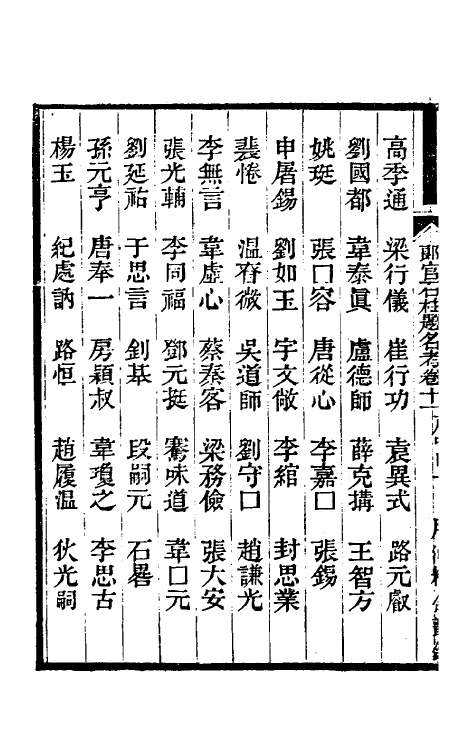 郎官石柱題名考卷十一
高季通 梁行儀 崔行功 袁異式 路元叡
劉國都 韋泰眞 盧德師 薛克搆 王智方
姚珽 張口容 唐從心 李嘉口 張錫
申屠錫 劉如玉 宇文儆 李綰 封思業
裴惓 溫脊微 吳道師 劉守口 趙謙光
李無言 韋虛心 蔡秦客 梁務儉 張大安
張光輔 李同福 鄧元挺 騫味道 韋口元
劉延祐 于思言 劉基 段嗣元 石晷
孫元亨 唐奉一 房穎叔 韋瓊之 李思古
楊玉 紀處訥 路恒 趙履溫 狄光嗣